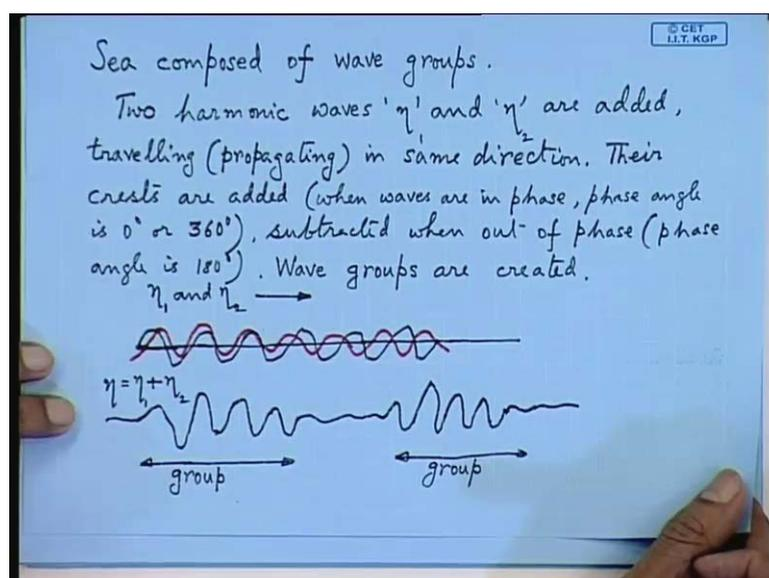 © CET
I.I.T. KGP
Sea composed of wave groups.
Two harmonic waves 'η₁' and 'η₂' are added,
travelling (propagating) in same direction. Their
crests are added (when waves are in phase, phase angle
is 0° or 360°), subtracted when out-of phase (phase
angle is 180°). Wave groups are created.
η₁ and η₂ →
η = η₁ + η₂
group group